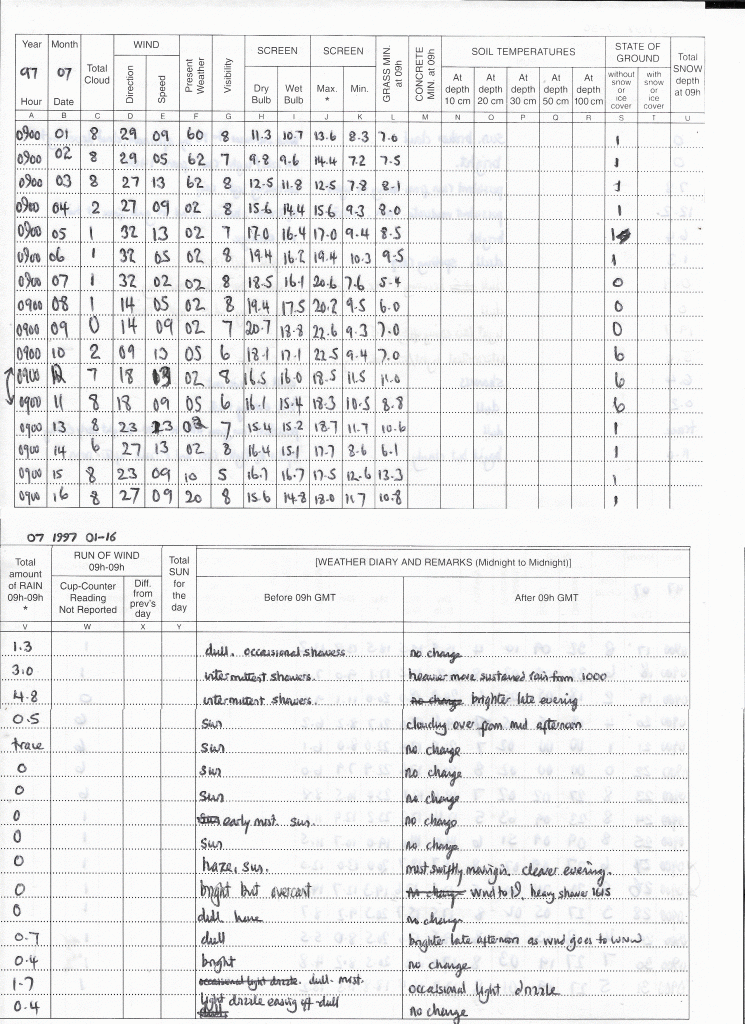 Year Month Total Cloud WIND Present Weather Visibility SCREEN SCREEN GRASS MIN. at 09h CONCRETE MIN. at 09h SOIL TEMPERATURES STATE OF GROUND Total SNOW depth at 09h
97 07 Direction Speed Dry Bulb Wet Bulb Max. * Min. At depth 10 cm At depth 20 cm At depth 30 cm At depth 50 cm At depth 100 cm without snow or ice cover with snow or ice cover
Hour Date
A B C D E F G H I J K L M N O P Q R S T U
0900 01 8 29 09 60 8 11.3 10.7 13.6 8.3 7.0 1
0900 02 8 29 05 62 7 9.8 9.6 14.4 7.2 7.5 1
0900 03 8 27 13 62 8 12.5 11.8 12.5 7.8 8.1 1
0900 04 2 27 09 02 8 15.6 14.4 15.6 9.3 8.0 1
0900 05 1 32 13 02 7 17.0 16.4 17.0 9.4 8.5 1
0900 06 1 32 05 02 8 19.4 16.2 19.4 10.3 9.5 1
0900 07 1 32 02 02 8 18.5 16.1 20.6 7.6 5.4 0
0900 08 1 14 05 02 8 19.4 17.5 20.2 9.5 6.0 0
0900 09 0 14 09 02 7 20.7 18.8 22.6 9.3 7.0 0
0900 10 2 09 13 05 6 18.1 17.1 22.5 9.4 7.0 6
0900 12 7 18 13 02 8 16.5 16.0 18.5 11.5 11.0 6
0900 11 8 18 09 05 6 16.1 15.4 18.3 10.5 8.8 6
0900 13 8 23 23 02 7 15.4 15.2 18.7 11.7 10.6 1
0900 14 6 27 13 02 8 16.4 15.1 17.7 8.6 6.1 1
0900 15 8 23 09 10 5 16.7 16.7 17.5 12.6 13.3 1
0900 16 8 27 09 20 8 15.6 14.8 18.0 11.7 10.8 1
07 1997 01-16
Total amount of RAIN 09h-09h * RUN OF WIND 09h-09h Total SUN for the day [WEATHER DIARY AND REMARKS (Midnight to Midnight)]
Cup-Counter Reading Not Reported Diff. from prev's day Before 09h GMT After 09h GMT
V W X Y
1.3 dull. occassional showers no change
3.0 intermittent showers. heavier more sustained rain from 1000
4.8 intermittent showers. no change brighter late evening
0.5 sun clouding over from mid afternoon
trace sun no change
0 sun no change
0 sun no change
0 sun early mist. sun. no change
0 sun no change
0 haze, sun. mist swiftly moving in. clearer evening.
0 bright but overcast no change wind to 19, heavy shower 1615
0 dull haze no change
0.7 dull brighter late afternoon as wind goes to WNW
0.4 bright no change
1.7 occasional light drizzle. dull. mist. occassional light drizzle
0.4 light drizzle easing off dull no change